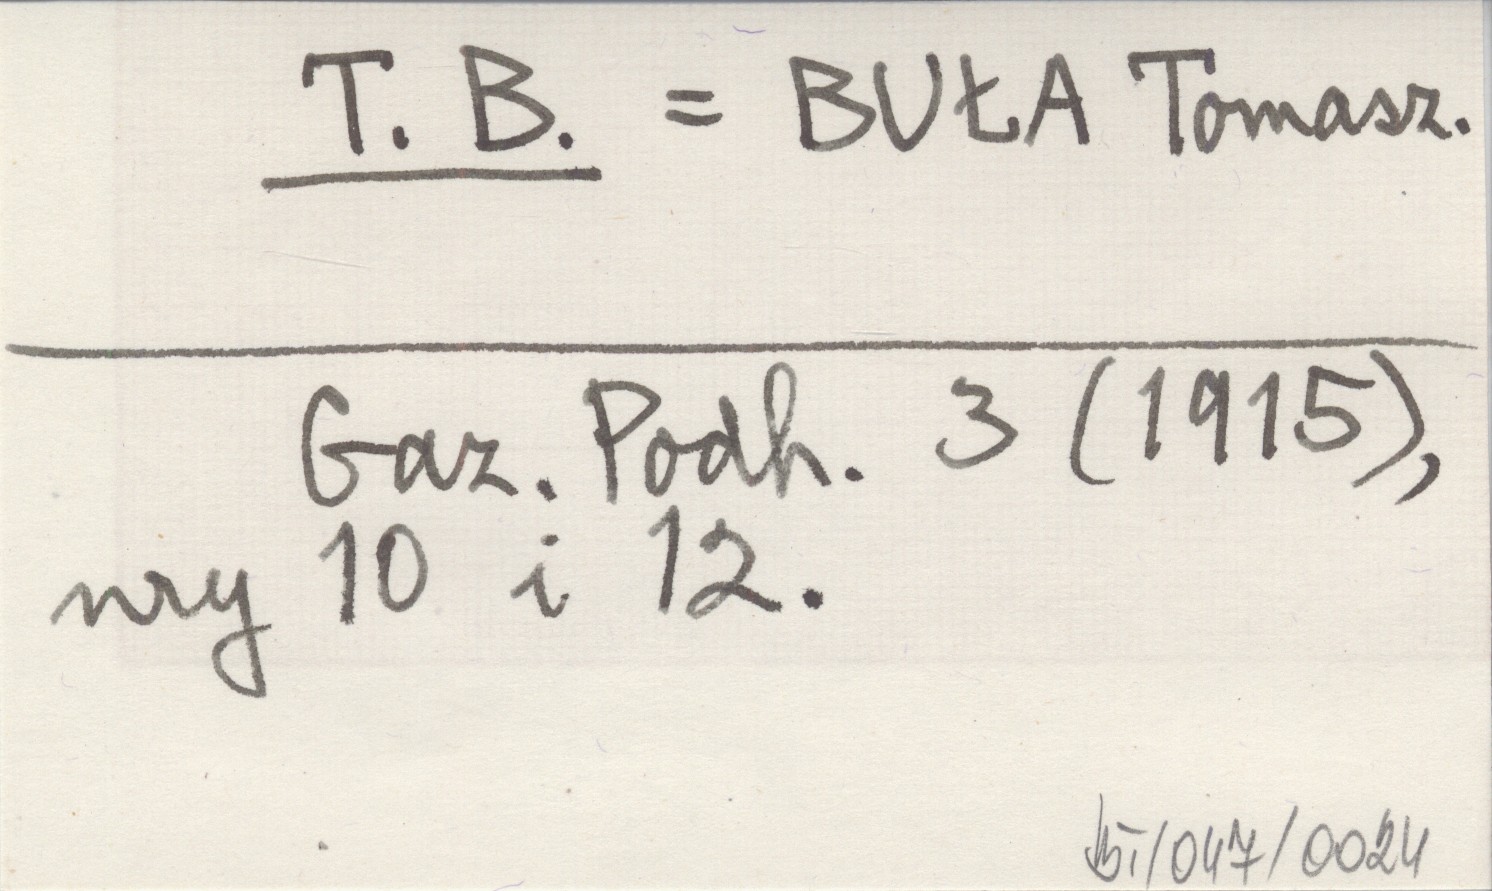 T. B. = BUŁA Tomasz.
Gaz. Podh. 3 (1915),
nry 10 i 12.
/047/0024